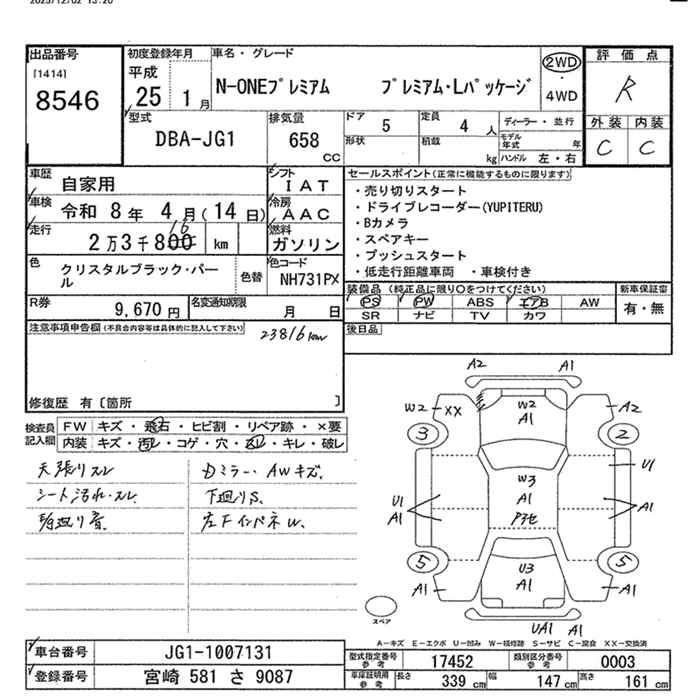 2025/12/02 13:20
出品番号
[1414]
8546
初度登録年月
平成
25 1 月
車名・グレード
N-ONEプレミアム プレミアム・Lパッケージ
2WD
4WD
評価点
R
外装 内装
C C
型式
DBA-JG1
排気量
658
CC
ドア 5
定員 4 人
形状
積載 kg
ディーラー・並行
モデル年式 年
ハンドル 左・右
車歴 自家用
シフト IAT
車検 令和 8年 4月(14日)
冷房 AAC
走行 2万3千800 km
16
燃料 ガソリン
色 クリスタルブラック・パール
色替
色コード NH731PX
R券 9,670 円
名変通知期限 月 日
セールスポイント(正常に機能するものに限ります)
・売り切りスタート
・ドライブレコーダー(YUPITERU)
・Bカメラ
・スペアキー
・プッシュスタート
・低走行距離車両 ・車検付き
装備品 (純正品に限り〇をつけてください)
PS PW ABS エアB AW
SR ナビ TV カワ
新車保証書
有・無
後日品
注意事項申告欄(不具合内容等は具体的に記入して下さい)
23816km
修復歴 有〔箇所 〕
検査員記入欄
FW キズ・飛石・ヒビ割・リペア跡・×要
内装 キズ・汚レ・コゲ・穴・スレ・キレ・破レ
天張りスレ
シート汚れ・スレ
Dミラー・AWキズ
下廻りS
左FインパネW
A2 A1
W2 XX
W2
A1
A2
3
2
W3
A1
U1
U1
A1
A1
5
5
U3
A1
A1
A1
UA1 A1
スペア
A-キズ E-エクボ U-凹み W-板修跡 S-サビ C-腐食 XX-交換済
車台番号 JG1-1007131
登録番号 宮崎 581 さ 9087
型式指定番号 参考 17452
類別区分番号 参考 0003
車庫証明用 参考 長さ 339 cm 幅 147 cm 高さ 161 cm